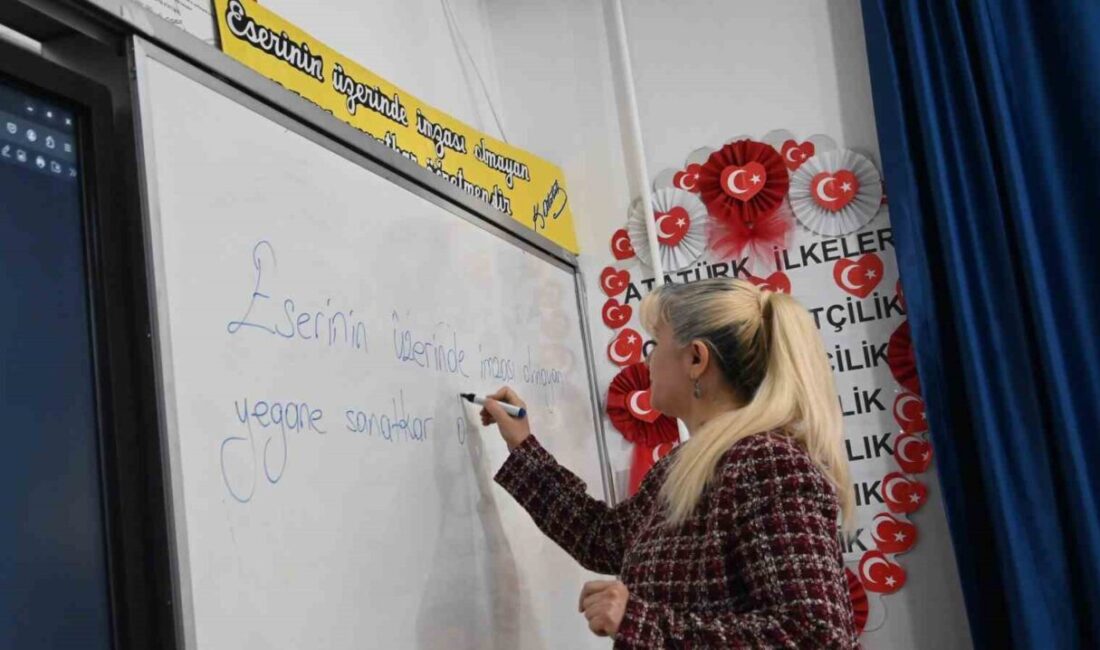 Eserinin üzerinde imzası olmayan
sanatkar öğretmendir
K. Atatürk
Eserinin üzerinde imzası olmayan
yegane sanatkar ö
ATATÜRK İLKELER
TÇİLİK
ÇİLİK
LİK
LIK
IK
LIK